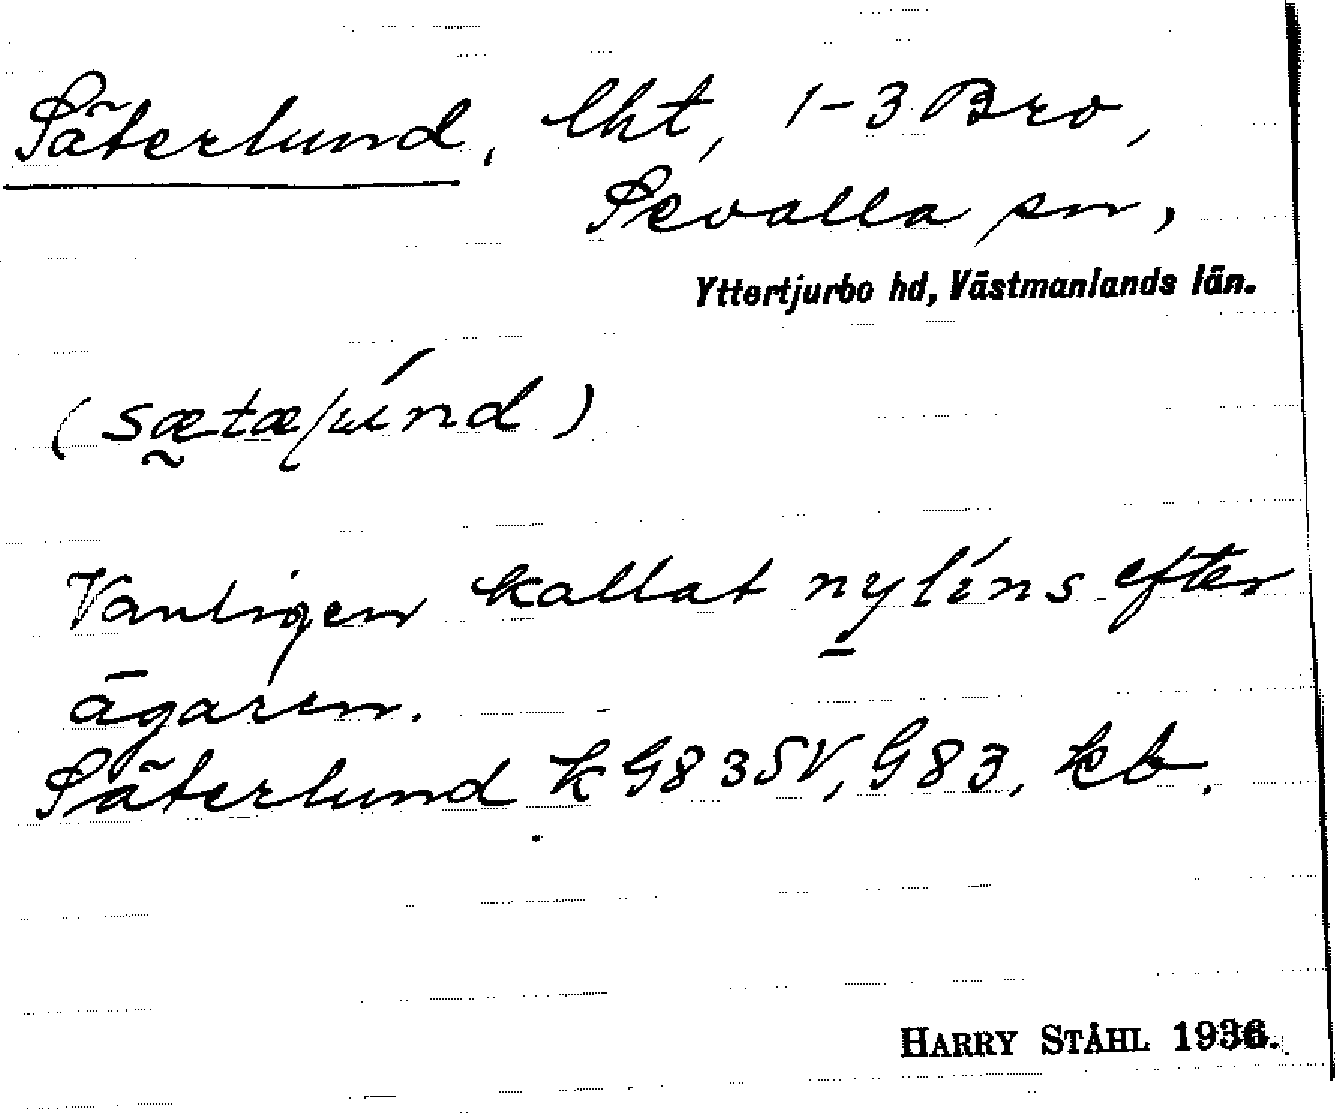 Säterlund, lht, 1-3 Bro,
Sevalla sn,
Yttertjurbo hd, Västmanlands län.
(sætæluńd)
Vanligen kallat nylíns efter
ägaren.
Säterlund k G83SV, G83, kb.
HARRY STÅHL 1936.